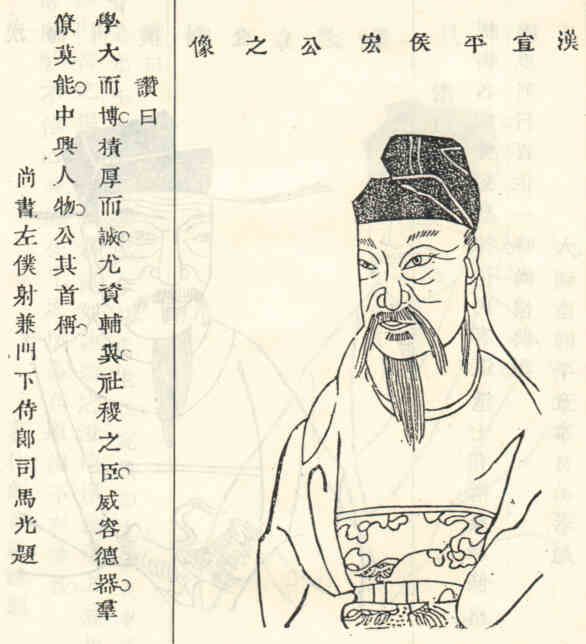 漢宣平侯宏公之像
讚曰
學大而博積厚而誠尤資輔翼社稷之臣威容德器羣
僚莫能中興人物公其首稱
尚書左僕射兼門下侍郎司馬光題